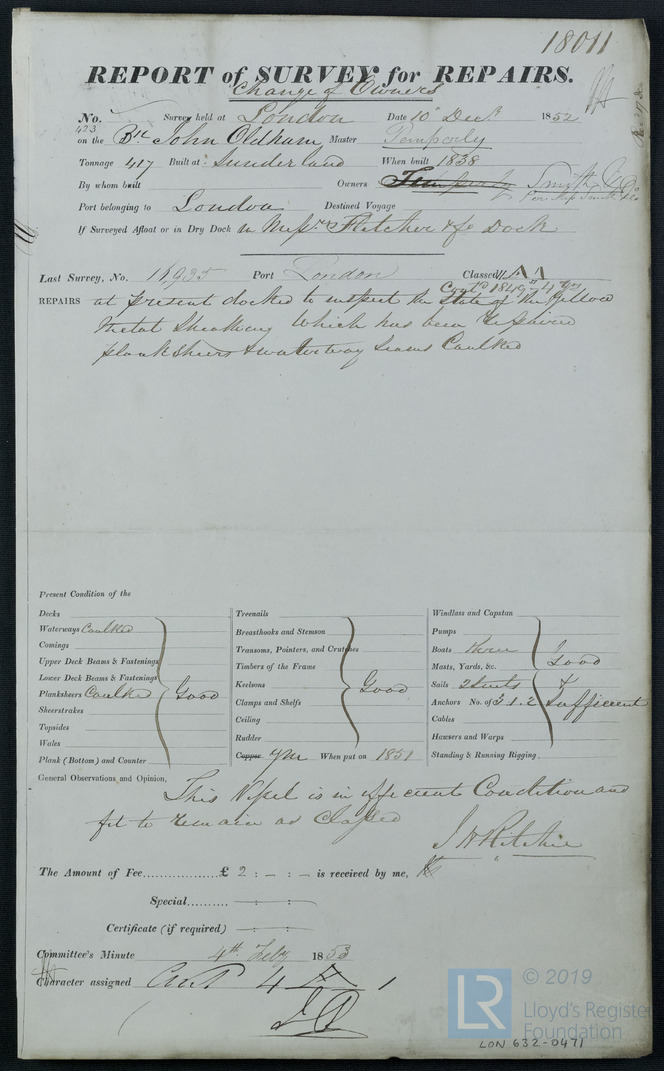 18011
REPORT of SURVEY for REPAIRS.
Change of Owners
No. 423 Survey held at London Date 10 Decr. 1852
on the Bk John Oldham Master Temperly
Tonnage 417 Built at Sunderland When built 1838
By whom built Owners Smith & Co
Port belonging to London Destined Voyage
If Surveyed Afloat or in Dry Dock in Messrs Fletcher & Co Dock
Last Survey, No. 16,935 Port London Classed A1
Contd 1849 - 4 Yrs
REPAIRS at present docked to inspect the State of the Yellow
Metal Sheathing which has been repaired
planksheers & waterway seams Caulked
Present Condition of the
Decks
Waterways Caulked
Comings
Upper Deck Beams & Fastenings
Lower Deck Beams & Fastenings
Planksheers Caulked Good
Sheerstrakes
Topsides
Wales
Plank (Bottom) and Counter
Treenails
Breasthooks and Stemson
Transoms, Pointers, and Crutches
Timbers of the Frame
Keelsons Good
Clamps and Shelfs
Ceiling
Rudder
Copper YM When put on 1851
Windlass and Capstan
Pumps
Boats Three Good
Masts, Yards, &c.
Sails 2 Suits &
Anchors No. of 3.1.2 Sufficient
Cables
Hawsers and Warps
Standing & Running Rigging
General Observations and Opinion,
This Vessel is in efficient Condition and
fit to remain as Classed
J W Ritchie
The Amount of Fee............... £ 2 : - : - is received by me,
Special......... - : - : -
Certificate (if required) - : - : -
Committee's Minute 4th Feby 1853
Character assigned Cont 4 A 1
LR
© 2019
Lloyd's Register
Foundation
LON 632-0471